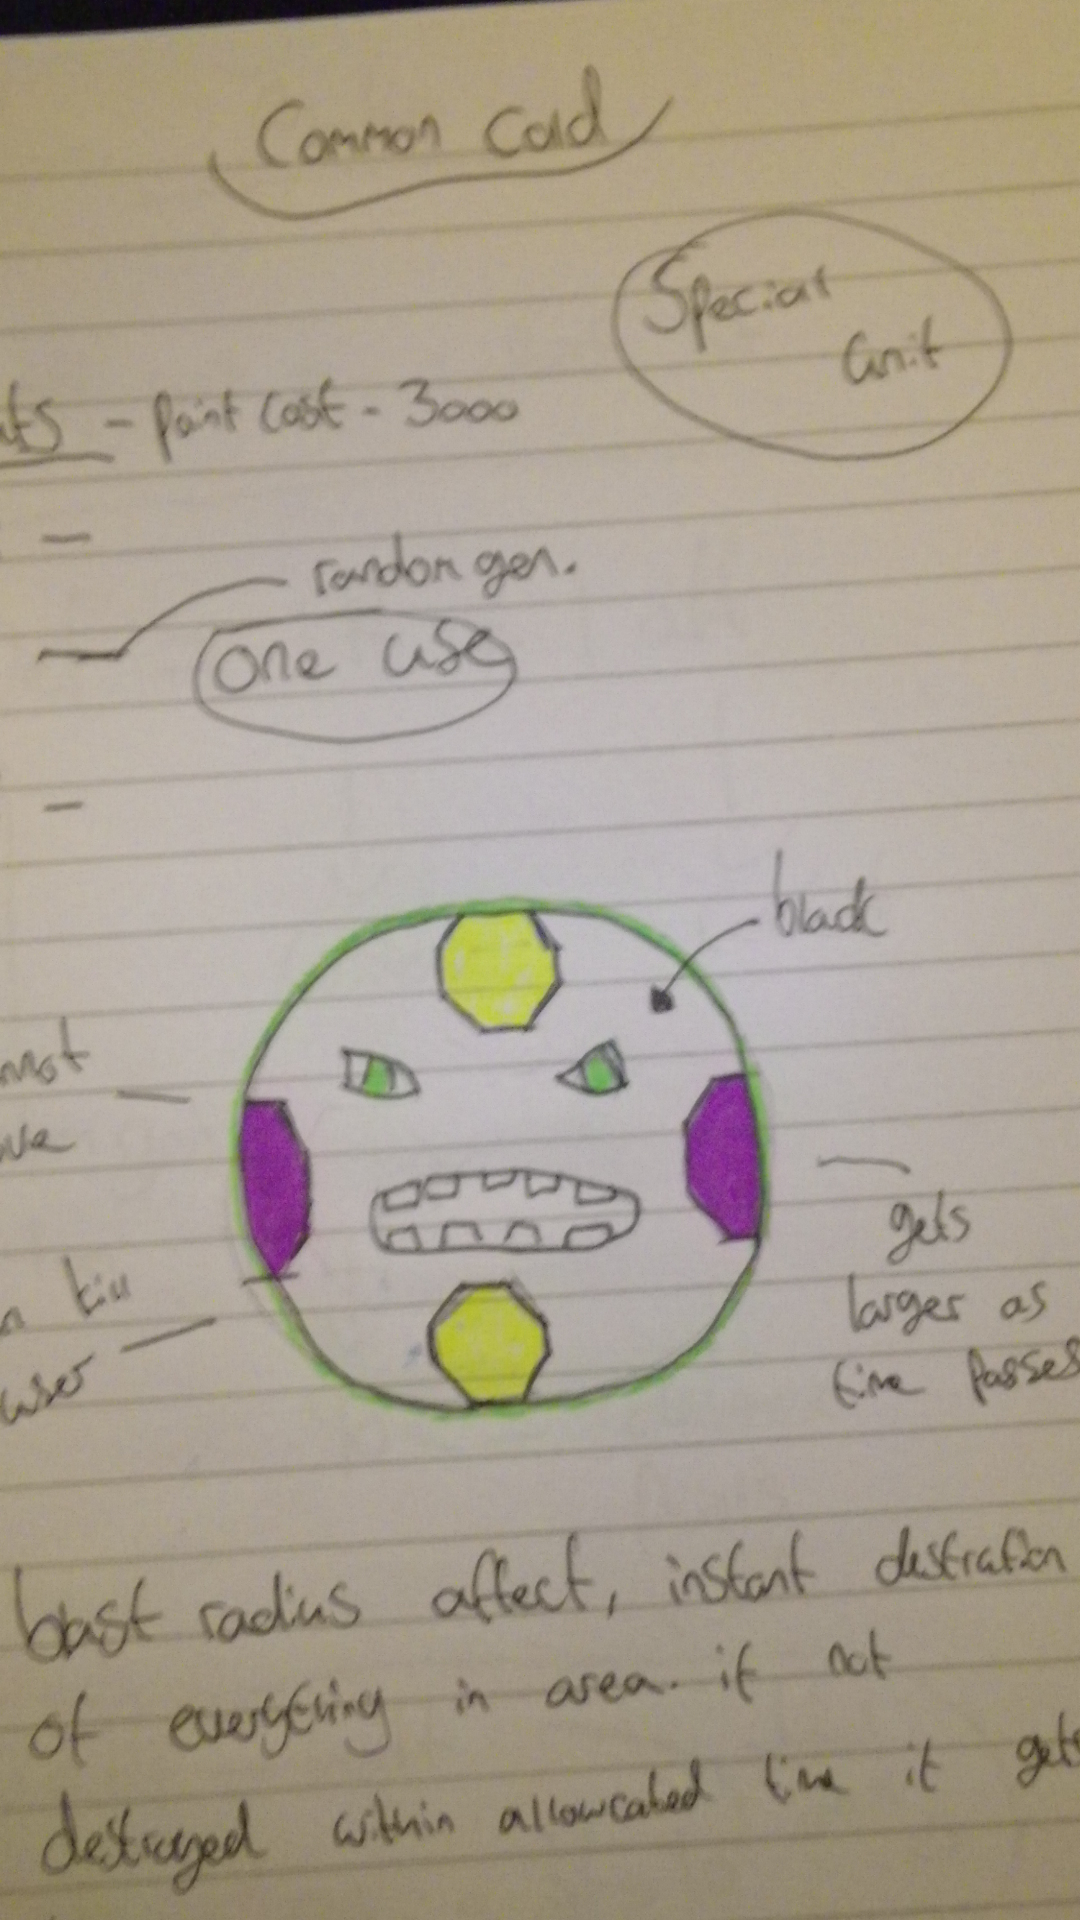 Common Cold
Special
unit
- Point Cost - 3000
random gen.
one use
black
kill
user
gets
larger as
time passes
blast radius affect, instant
of everything in area. if not
destroyed within allowcated time it gets